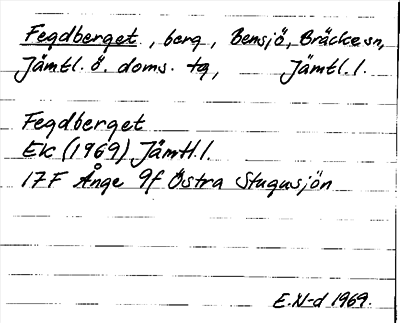 Fegdberget, berg, Bensjö, Bräcke sn,
Jämtl. ö. doms. tg, Jämtl. l.
Fegdberget
Ek (1969) Jämtl. l.
17F Ånge 9f Östra Stugusjön
E.N-d 1969.